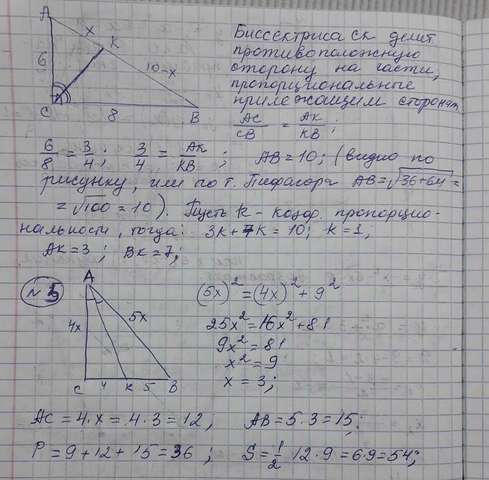 A
6
C
x
K
10-x
8
B
Биссектриса ск делит
противоположную
сторону на части,
пропорциональные
прилежащим сторонам
AC/CB = AK/KB;
6/8 = 3/4; 3/4 = AK/KB; AB = 10; (видно по
рисунку, или по т. Пифагора AB = √36+64 =
= √100 = 10). Пусть k - коэф пропорцио-
нальности, тогда: 3k + 4k = 10; k = 1,
AK = 3; BK = 7;
№ 3
A
4x
5x
C
4
K
5
B
(5x)² = (4x)² + 9²
25x² = 16x² + 81
9x² = 81
x² = 9
x = 3;
AC = 4·x = 4·3 = 12; AB = 5·3 = 15;
P = 9 + 12 + 15 = 36; S = 1/2 · 12 · 9 = 6·9 = 54;